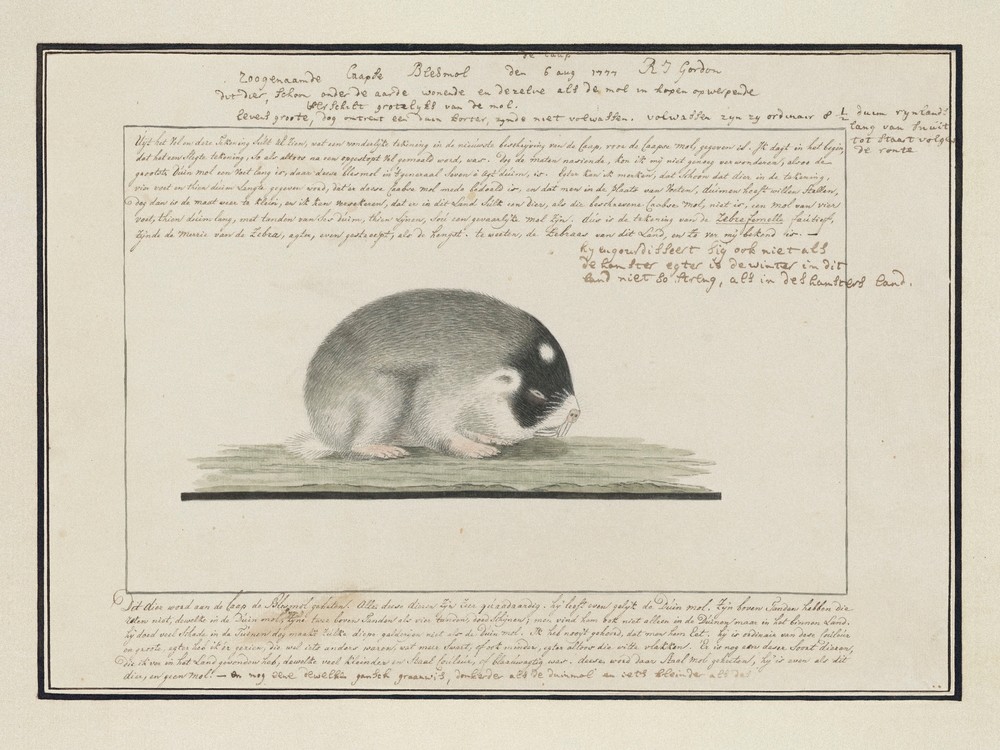 de Caap
Zoogenaamde Caapse Blesmol den 6 aug 1777 R J Gordon
dit dier, schon onder de aarde wonende en dezelve als de mol in hopen opwerpende
verschilt grotelyks van de mol.
levens groote, dog omtrent een duim korter, zynde niet volwassen. volwassen zyn zy ordinair 8 1/2 duim rynlands
lang van snuit
tot staart volgens
de ronte
Uyt het Vel en dese Tekening Sulk al Sien, wat een wonderlyke tekening in de nieuwste beschryving van de Caap, voor de Caapse mol, gegeven is. Ik dagt in het begin,
dat het een slegte tekening, so als altoos na een opgestopt Vel gemaakt word, was. Dog de maten nasiende, kon ik my niet genoeg verwonderen, alsoo de
grootste Duin mol een voet lang is, daar dese blesmol in generaal Seven à agt duim, is. Seker kan ik merken, dat schoon dat dier in de tekening,
vier voet en thien duim Lengte gegeven word, dit de deese Caabse mol mede bedoeld is, en dat men in de plaats van Voeten, duimen heeft willen Stellen,
dog dan is de maat weer te klein, en ik kan versekeren, dat er in dit Land Sulk een dier, als die beschrevene Caabse mol, niet is, een mol van vier
voet, thien duim lang, met tanden van Ses duim, thien Lynen, Soú een gevaarlyke mol zyn. dús is de tekening van de Zebra femelle fautief,
zynde de Merrie van de Zebra, agter, even gestreept, als de hengst. te weeten, de Zebraas van dit Land, en zo ver my bekend is. —
hy engourdisseert sig ook niet als
de hamster egter is de winter in dit
land niet so streng, als in des hamsters land.
Dit dier word aan de Caap de Blesmol geheten. Alle deese dieren zyn seer quaadaardig. hy leeft even gelyk de Duin mol. Zyn boven Tanden hebben die
reten niet, dewelke in de Duin mols zyne twee boven Tanden als vier tanden, doed Schynen; men vind hem ook niet alleen in de Duinen maar in het binnen Land.
hy doed veel Schade in de Tuinen dog maakt zulke diepe galderien niet als de Duin mol. Ik heb nooyt gehoord, dat men hem Eat. hy is ordinair van dese Couleur
en groote. egter heb ik er gezien, die wel iets anders waren, wat meer Swart, of ook minder, egter altoos die witte vlakken. Er is nog een dieser Soort dieren,
die ik ver in het Land gevonden heb, dewelke veel kleinder en Staal Couleur, of blaauwagtig was. deesen word daar Staal mol geheeten, hy is even als dit
dier, en geen mol. — en nog eene dewelke gantsch graauw is, donkerder als de duinmol en iets kleinder als des